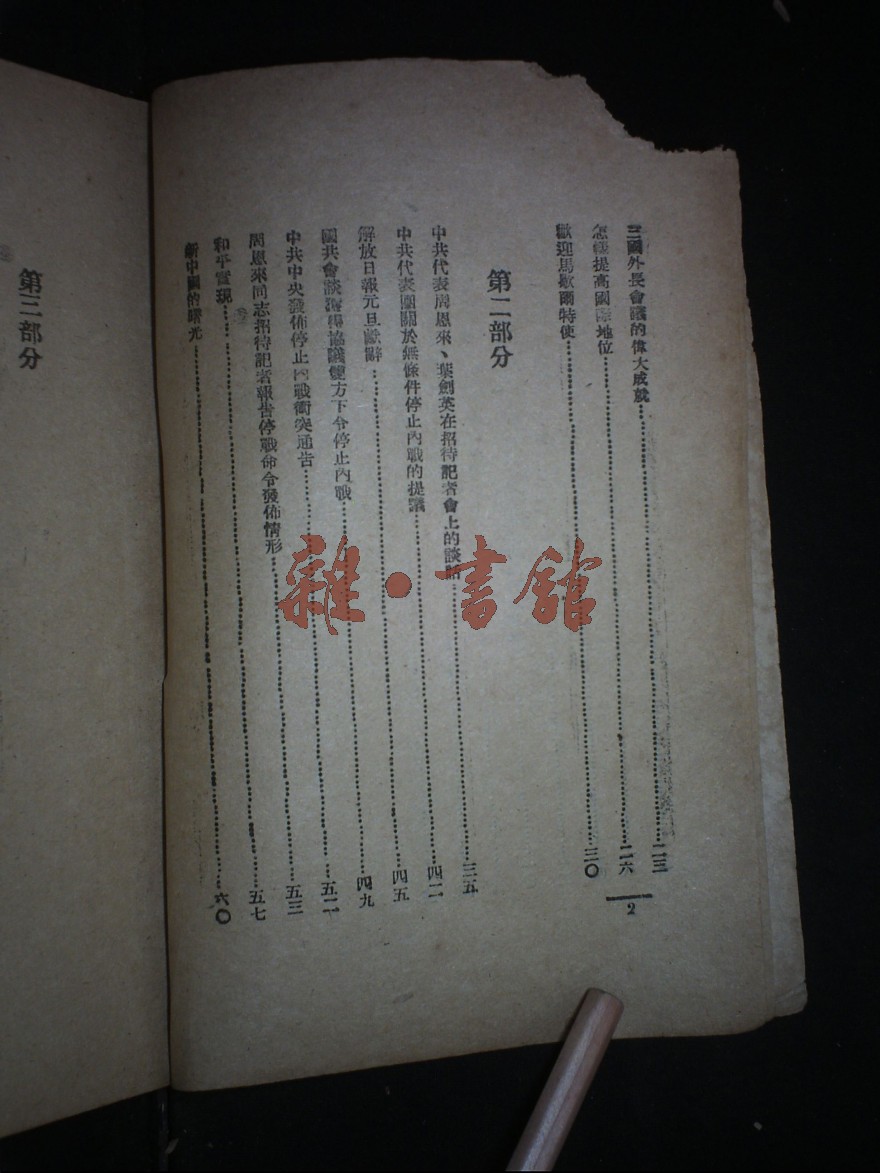 三國外長會議的偉大成就……二三
怎樣提高國際地位……二六
歡迎馬歇爾特使……三〇
第二部分
中共代表周恩來、葉劍英在招待記者會上的談話……三五
中共代表團關於無條件停止內戰的提議……四二
解放日報元旦獻辭……四五
國共會談獲得協議雙方下令停止內戰……四九
中共中央發佈停止內戰衝突通告……五二
周恩來同志招待記者報告停戰命令發佈情形……五三
和平實現……五七
新中國的曙光……六〇
2
第三部分
雜·書館